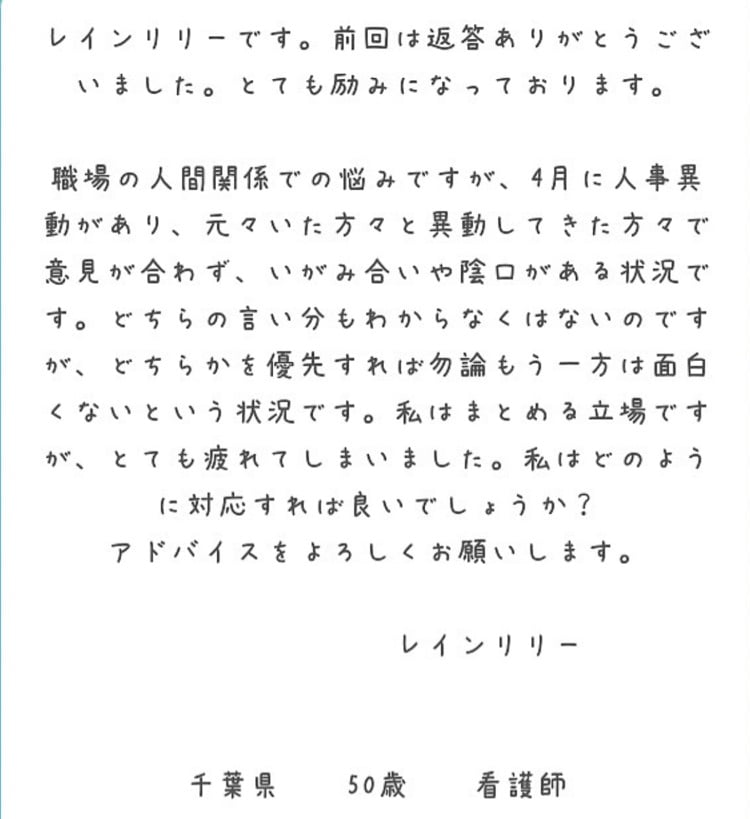 レインリリーです。前回は返答ありがとうござ
いました。とても励みになっております。
職場の人間関係での悩みですが、4月に人事異
動があり、元々いた方々と異動してきた方々で
意見が合わず、いがみ合いや陰口がある状況で
す。どちらの言い分もわからなくはないのです
が、どちらかを優先すれば勿論もう一方は面白
くないという状況です。私はまとめる立場です
が、とても疲れてしまいました。私はどのよう
に対応すれば良いでしょうか？
アドバイスをよろしくお願いします。
レインリリー
千葉県 50歳 看護師